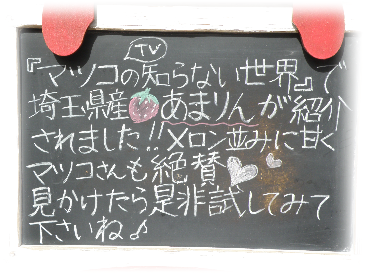 TV
『マツコの知らない世界』で
埼玉県産🍓あまりんが紹介
されました!!メロン並みに甘く
マツコさんも絶賛♥♥
見かけたら是非試してみて
下さいね♪